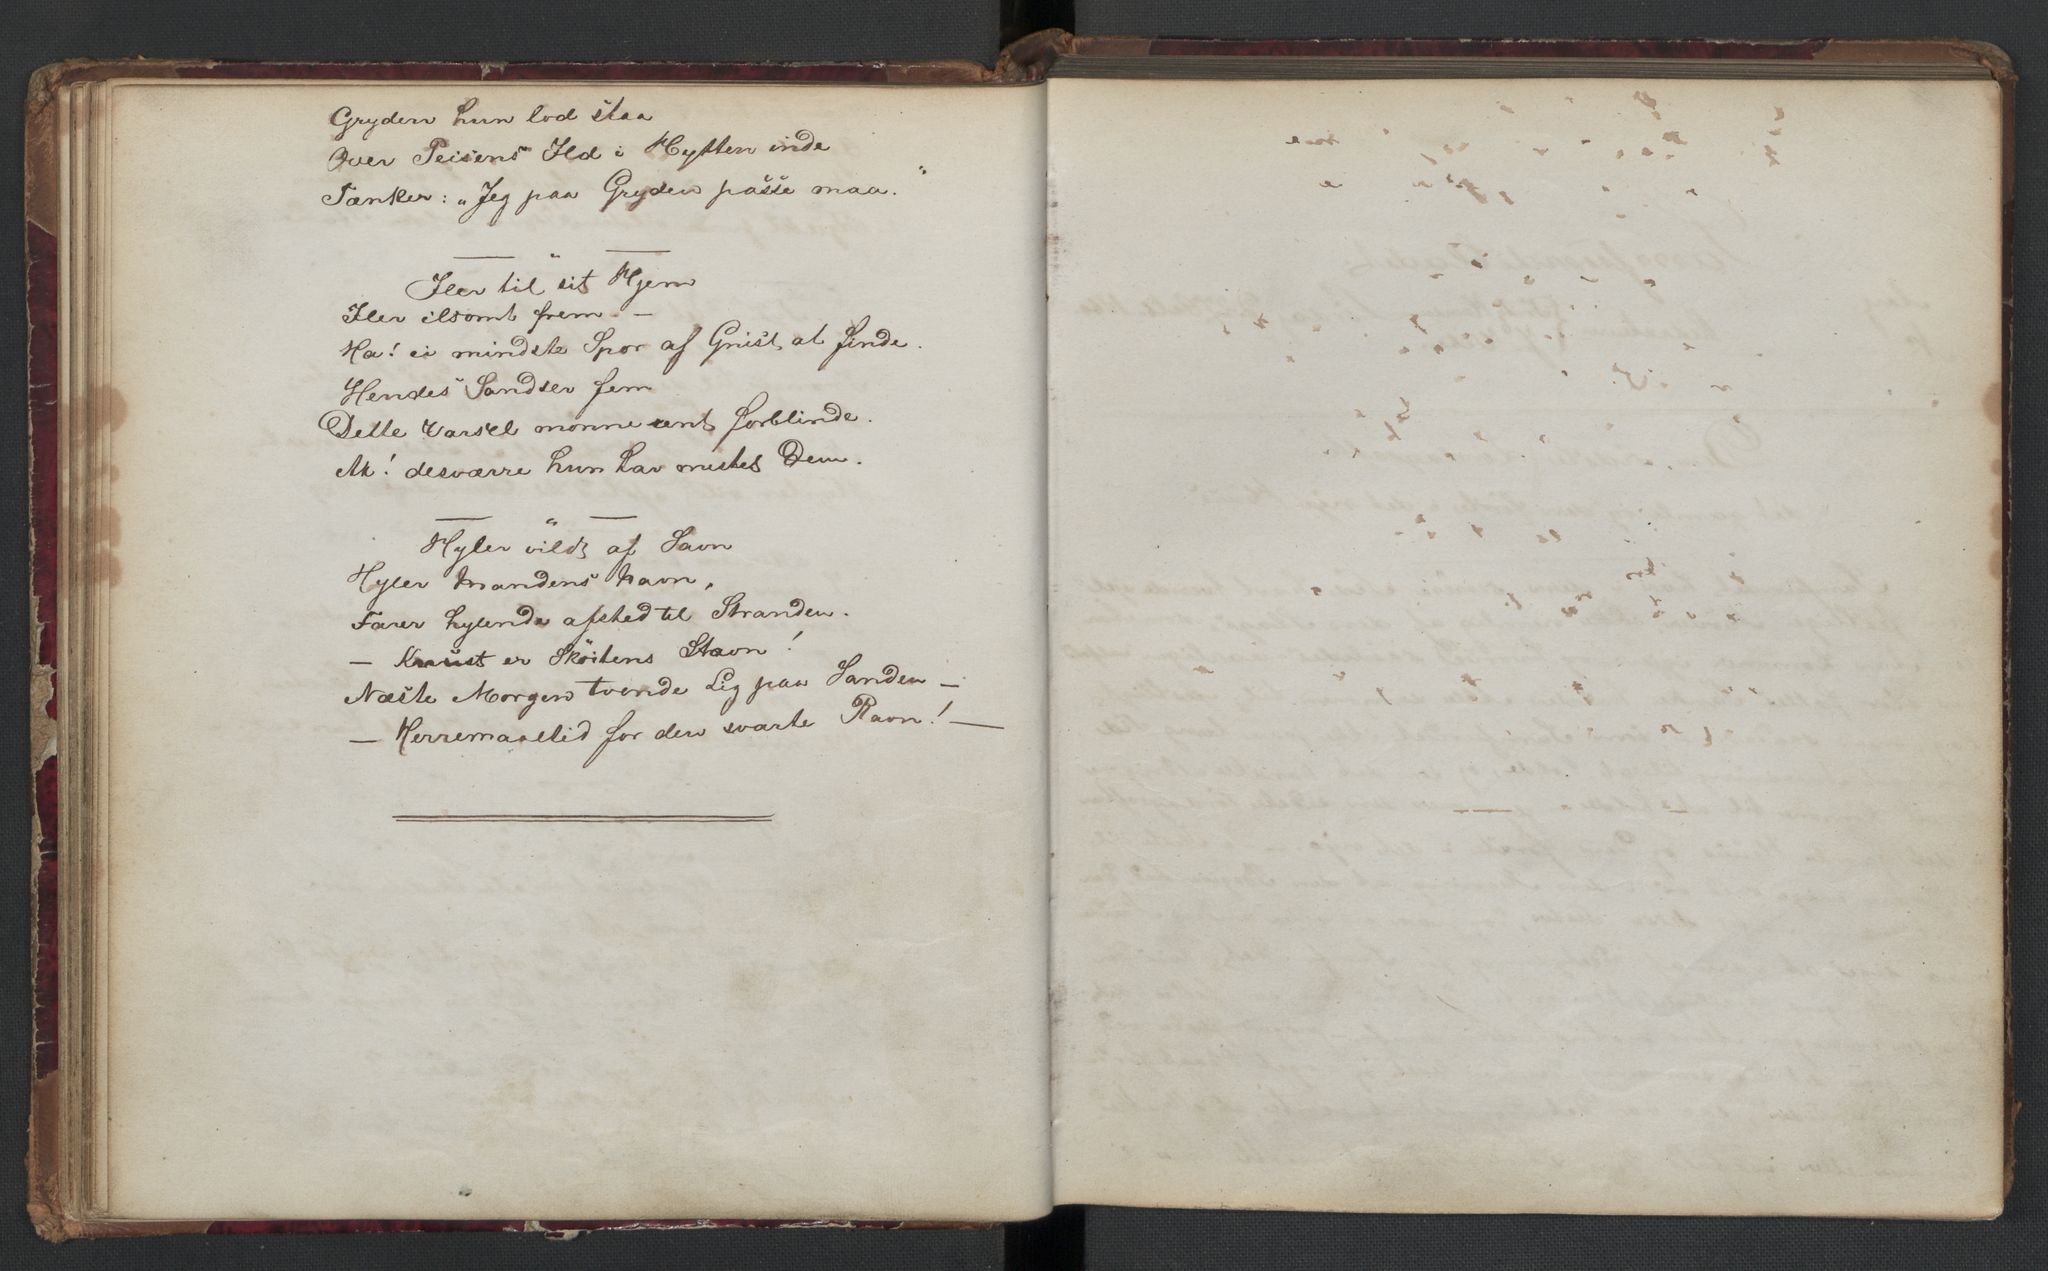 Gryden hun lod staa
Over Peisens Ild i Hytten inde
Tænker: „Jeg paa Gryden passe maa."
— " —
Iler til sit Hjem
Iler ilsomt frem. —
Ha! ei mindste Spor af Gnist at finde.
Hendes Sandser fem
Dette Varsel monne rent forblinde.
Ak! desværre hun har mistet Dem.
— " —
Hyler vildt af Savn
Hyler Mandens Navn,
Farer hylende afsted til Stranden.
— Knust er Skøitens Stavn!
Næste Morgen tvende Lig paa Sanden —
— Herremaaltid for den svarte Ravn! —